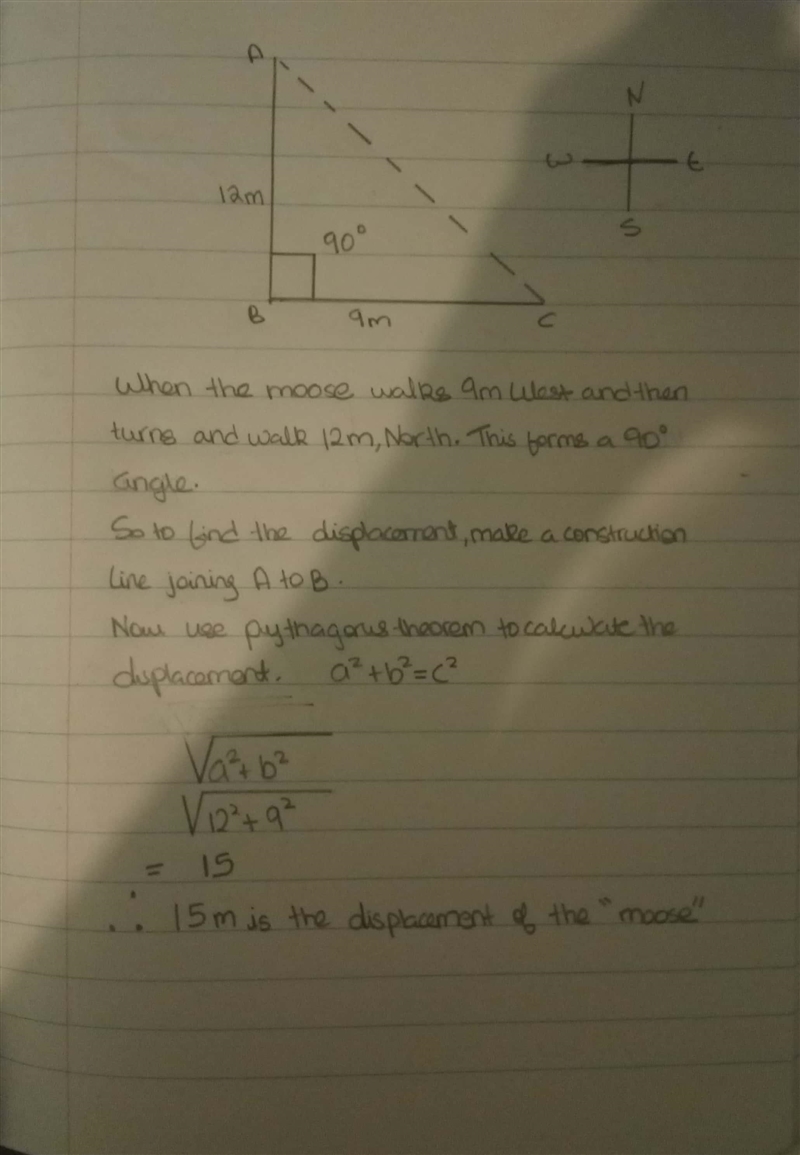 A
N
W E
12m
S
90°
B 9m C
When the moose walks 9m West and then
turns and walk 12m, North. This forms a 90°
angle.
So to find the displacement, make a construction
line joining A to B.
Now use pythagorus theorem to calculate the
displacement. a²+b²=c²
√a²+b²
√12²+9²
= 15
∴ 15m is the displacement of the "moose"